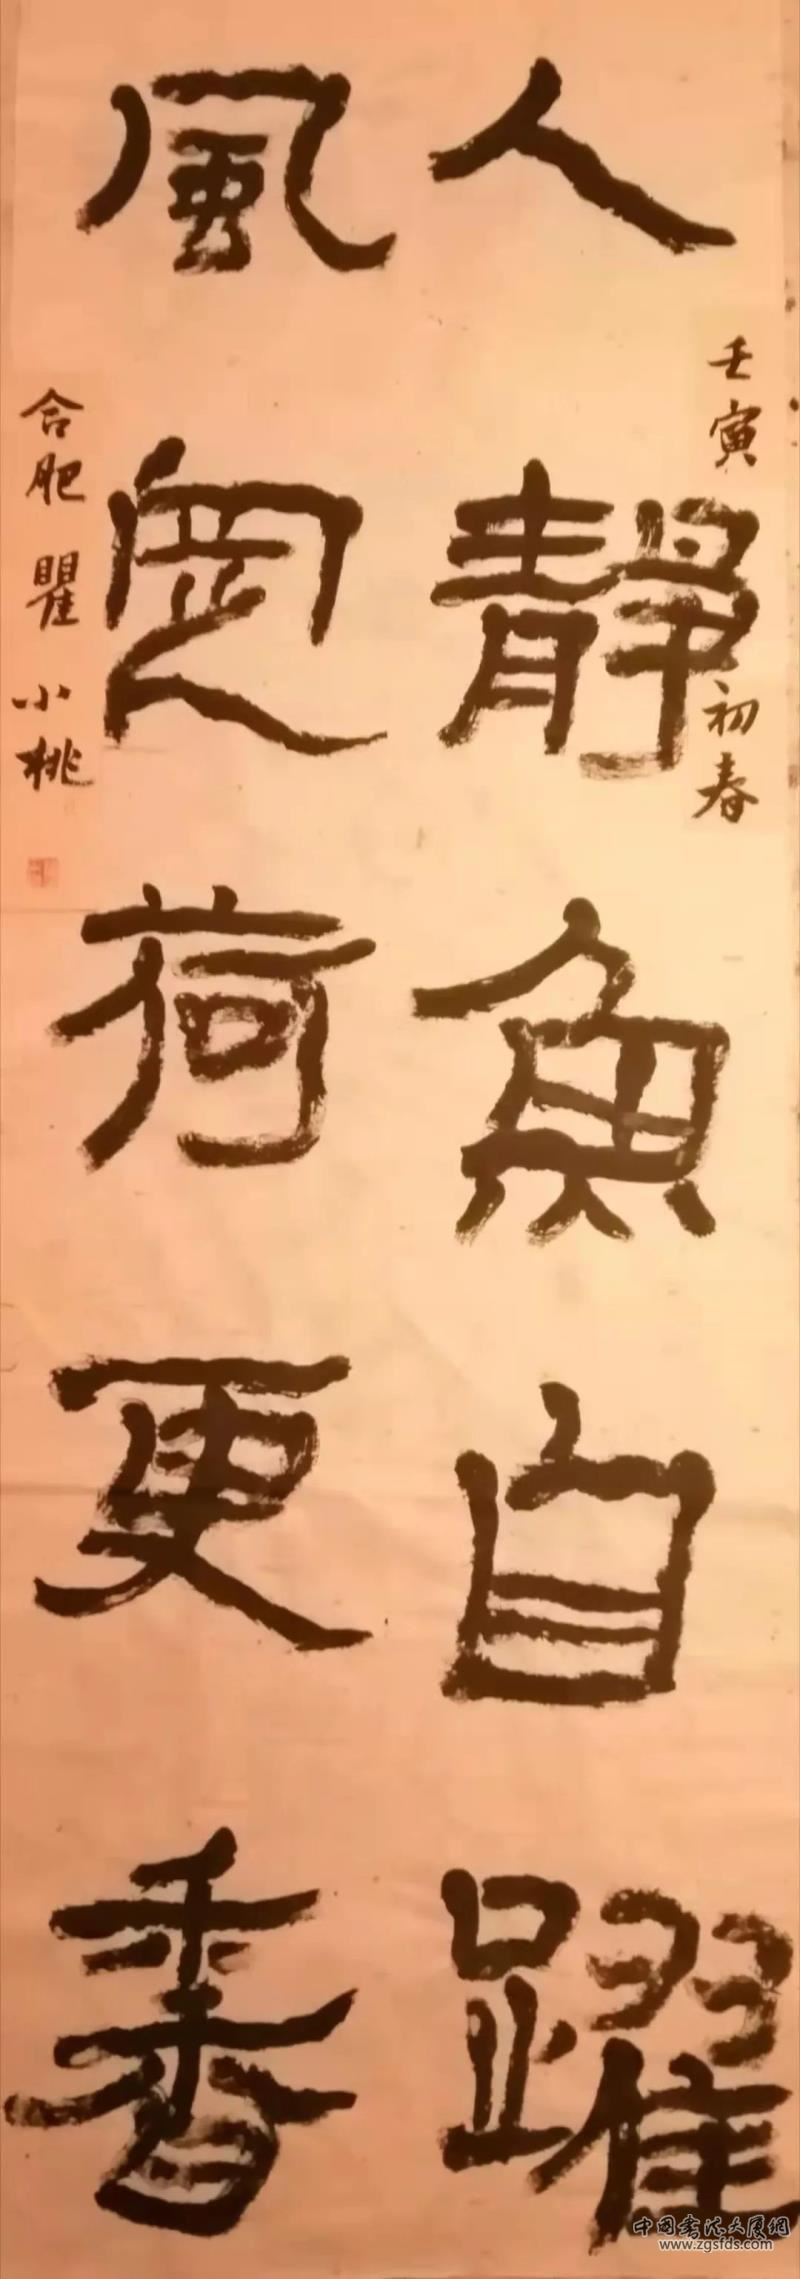 人靜魚自躍
風定荷更香
壬寅初春
合肥瞿小桃
中國書法大廈網
www.zgsfds.com